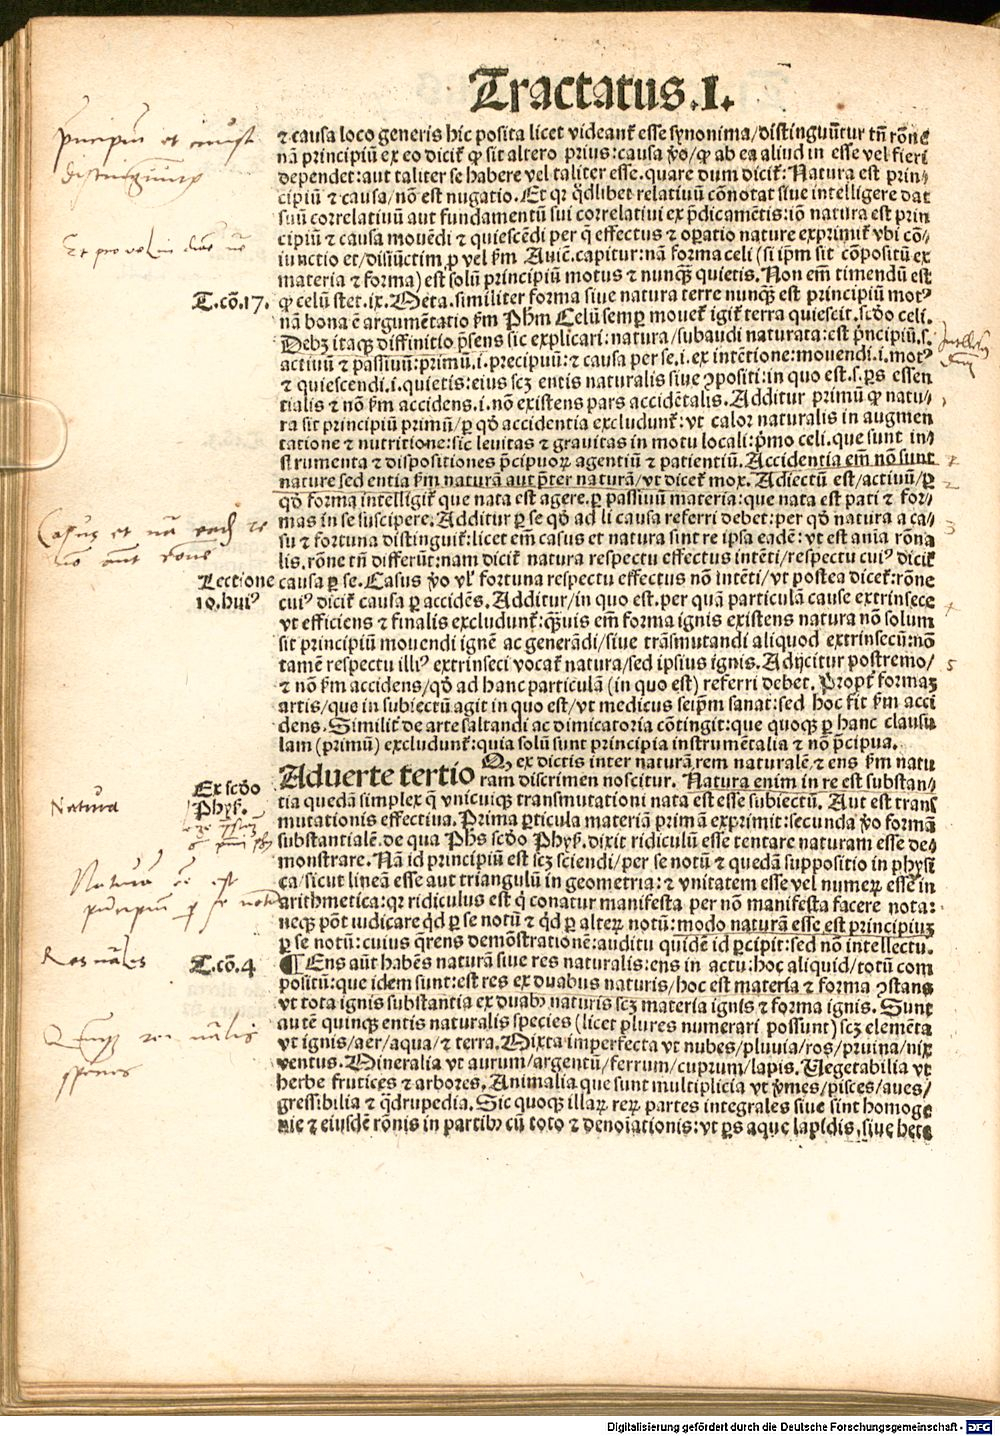 Tractatus.I.
⁊ causa loco generis hic posita licet videant᷑ esse synonima/distinguūtur tn̄ rōne
nā principiū ex eo dicit᷑ ꝙ sit altero prius: causa ꝟo/ꝙ ab ea aliud in esse vel fieri
dependet: aut taliter se habere vel taliter esse. quare dum dicit᷑: Natura est prin⸗
cipiū ⁊ causa/nō est nugatio. Et qꝛ qdlibet relatiuū cōnotat siue intelligere dat
suū correlatiuū aut fundamentū sui correlatiui ex p̄dicamētis: iō natura est prin
cipiū ⁊ causa mouēdi ⁊ quiescēdi per q̄ effectus ⁊ oꝑatio nature exprimit᷑ vbi cō⸗
iunctio et/disiūctim ꝑ vel ẜm Auicē. capitur: nā forma celi (si ipm̄ sit cōpositū ex
materia ⁊ forma) est solū principiū motus ⁊ nunqꝫ quietis. Non em̄ timendū est
T.cō.17.
ꝙ celū stet. ix. Meta. similiter forma siue natura terre nunqꝫ est principiū motꝰ
nā bona ē argumētatio ẜm Phm̄ Celū semꝑ mouet᷑ igit᷑ terra quiescit. scd̄o celi.
Debꝫ itaqꝫ diffinitio p̄sens sic explicari: natura/subaudi naturata: est p̄ncipiū.s.
actiuū ⁊ passiuū: primū.i. precipuū: ⁊ causa per se.i. ex intētione: mouendi.i. motꝰ
⁊ quiescendi.i. quietis: eius scꝫ entis naturalis siue ꝯpositi: in quo est.s. ꝑs essen
tialis ⁊ nō ẜm accidens.i. nō existens pars accidētalis. Additur primū ꝙ natu⸗
ra sit principiū primū/ꝑ qd̄ accidentia excludunt᷑: vt calor naturalis in augmen
tatione ⁊ nutritione: sic leuitas ⁊ grauitas in motu locali: p̄mo celi. que sunt in⸗
strumenta ⁊ dispositiones p̄cipuoꝝ agentiū ⁊ patientiū. Accidentia em̄ nō sunt
nature sed entia ẜm naturā aut p̄ter naturā/vt dicet᷑ mox. Adiectū est/actiuū/ꝑ
qd̄ forma intelligit᷑ que nata est agere. ꝑ passiuū materia: que nata est pati ⁊ for⸗
mas in se suscipere. Additur ꝑ se qd̄ ad li causa referri debet: per qd̄ natura a ca⸗
su ⁊ fortuna distinguit᷑: licet em̄ casus et natura sint re ipsa eadē: vt est aīa rōna
lis. rōne tn̄ differūt: nam dicit᷑ natura respectu effectus intēti/respectu cuiꝰ dicit᷑
Lectione
causa ꝑ se. Casus ꝟo vl᷑ fortuna respectu effectus nō intēti/vt postea dicet᷑: rōne
10. huiꝰ
cuiꝰ dicit᷑ causa ꝑ accidēs. Additur/in quo est. per quā particulā cause extrinsece
vt efficiens ⁊ finalis excludunt᷑: qꝫuis em̄ forma ignis existens natura nō solum
sit principiū mouendi ignē ac generādi/siue trāsmutandi aliquod extrinsecū: nō
tamē respectu illiꝰ extrinseci vocat᷑ natura/sed ipsius ignis. Adijcitur postremo/
⁊ nō ẜm accidens/qd̄ ad hanc particulā (in quo est) referri debet. Propt᷑ formaꝫ
artis/que in subiectū agit in quo est/vt medicus seipm̄ sanat: sed hoc fit ẜm acci
dens. Similit᷑ de arte saltandi ac dimicatoria cōtingit: que quoqꝫ ꝑ hanc clausu
lam (primū) excludunt᷑: quia solū sunt principia instrumētalia ⁊ nō p̄cipua.
Aduerte tertio Q, ex dictis inter naturā, rem naturalē, ⁊ ens ẜm natu
ram discrimen noscitur. Natura enim in re est substan⸗
Ex scd̄o
Phys.
Natura
tia quedā simplex q̄ vnicuiqꝫ transmutationi nata est esse subiectū. Aut est trans
mutationis effectiua. Prima ꝑticula materiā primā exprimit: secunda ꝟo formā
substantialē. de qua Phs scd̄o Phys. dixit ridiculū esse tentare naturam esse de⸗
monstrare. Nā id principiū est scꝫ sciendi/per se notū ⁊ quedā suppositio in physi
ca/sicut lineā esse aut triangulū in geometria: ⁊ vnitatem esse vel numeꝝ esse in
arithmetica: qꝛ ridiculus est q̇ conatur manifesta per nō manifesta facere nota:
neqꝫ pōt iudicare qd̄ ꝑ se notū ⁊ qd̄ ꝑ alteꝝ notū: modo naturā esse est principiuꝫ
ꝑ se notū: cuius q̄rens demōstrationē: auditu quidē id ꝑcipit: sed nō intellectu.
T.cō.4
¶ Ens aūt habēs naturā siue res naturalis: ens in actu: hoc aliquid/totū com
positū: que idem sunt: est res ex duabus naturis/hoc est materia ⁊ forma ꝯstans
vt tota ignis substantia ex duabꝰ naturis scꝫ materia ignis ⁊ forma ignis. Sunt
autē quinqꝫ entis naturalis species (licet plures numerari possunt) scꝫ elemēta
vt ignis/aer/aqua/⁊ terra. Mixta imperfecta vt nubes/pluuia/ros/pruina/nix
ventus. Mineralia vt aurum/argentū/ferrum/cuprum/lapis. Vegetabilia vt
herbe frutices ⁊ arbores. Animalia que sunt multiplicia vt ꝟmes/pisces/aues/
gressibilia ⁊ q̄drupedia. Sic quoqꝫ illaꝝ reꝝ partes integrales siue sint homoge
nie ⁊ eiusdē rōnis in partibꝰ cū toto ⁊ denoīationis: vt ꝑs aque lapidis, siue hete
Digitalisierung gefördert durch die Deutsche Forschungsgemeinschaft - DFG